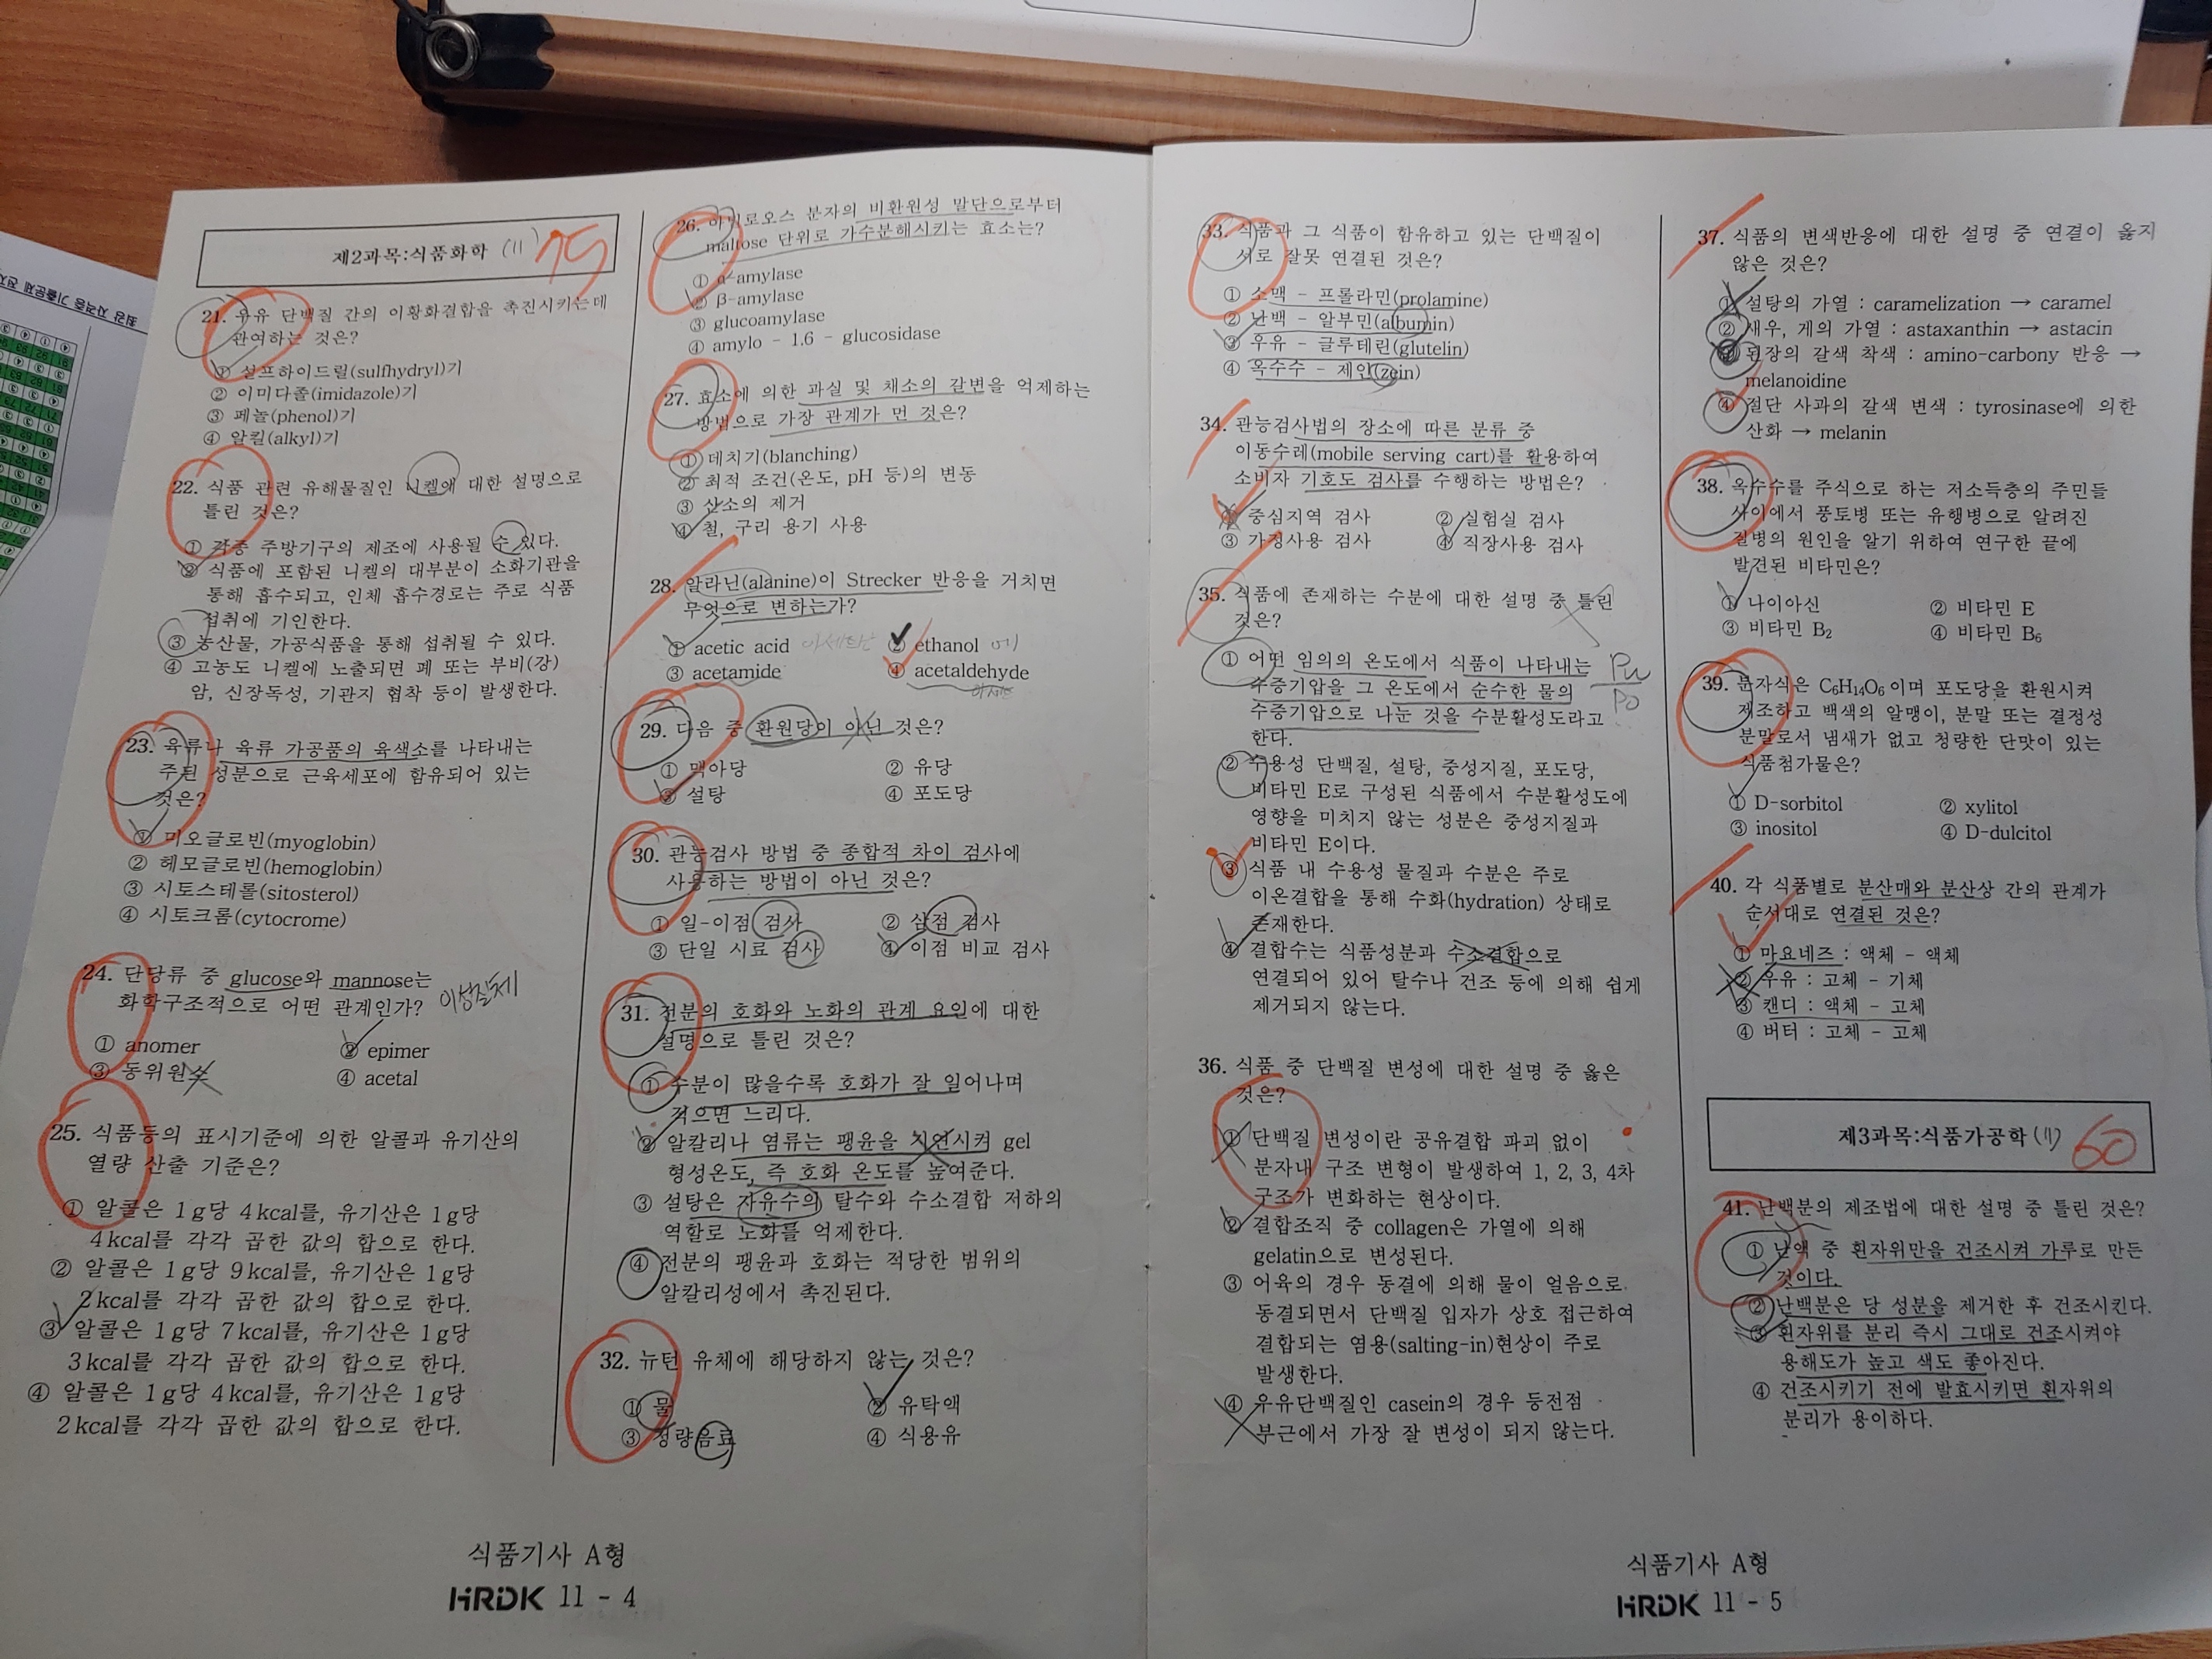 제2과목:식품화학 (11) 75
21. 우유 단백질 간의 이황화결합을 촉진시키는데
관여하는 것은?
① 설프하이드릴(sulfhydryl)기
② 이미다졸(imidazole)기
③ 페놀(phenol)기
④ 알킬(alkyl)기
22. 식품 관련 유해물질인 니켈에 대한 설명으로
틀린 것은?
① 각종 주방기구의 제조에 사용될 수 있다.
② 식품에 포함된 니켈의 대부분이 소화기관을
통해 흡수되고, 인체 흡수경로는 주로 식품
섭취에 기인한다.
③ 농산물, 가공식품을 통해 섭취될 수 있다.
④ 고농도 니켈에 노출되면 폐 또는 부비(강)
암, 신장독성, 기관지 협착 등이 발생한다.
23. 육류나 육류 가공품의 육색소를 나타내는
주된 성분으로 근육세포에 함유되어 있는
것은?
① 미오글로빈(myoglobin)
② 헤모글로빈(hemoglobin)
③ 시토스테롤(sitosterol)
④ 시토크롬(cytocrome)
24. 단당류 중 glucose와 mannose는
화학구조적으로 어떤 관계인가? 이성질체
① anomer ② epimer
③ 동위원소 ④ acetal
25. 식품등의 표시기준에 의한 알콜과 유기산의
열량 산출 기준은?
① 알콜은 1g당 4kcal를, 유기산은 1g당
4kcal를 각각 곱한 값의 합으로 한다.
② 알콜은 1g당 9kcal를, 유기산은 1g당
2kcal를 각각 곱한 값의 합으로 한다.
③ 알콜은 1g당 7kcal를, 유기산은 1g당
3kcal를 각각 곱한 값의 합으로 한다.
④ 알콜은 1g당 4kcal를, 유기산은 1g당
2kcal를 각각 곱한 값의 합으로 한다.
26. 아밀로오스 분자의 비환원성 말단으로부터
maltose 단위로 가수분해시키는 효소는?
① α-amylase
② β-amylase
③ glucoamylase
④ amylo - 1.6 - glucosidase
27. 효소에 의한 과실 및 채소의 갈변을 억제하는
방법으로 가장 관계가 먼 것은?
① 데치기(blanching)
② 최적 조건(온도, pH 등)의 변동
③ 산소의 제거
④ 철, 구리 용기 사용
28. 알라닌(alanine)이 Strecker 반응을 거치면
무엇으로 변하는가?
① acetic acid ② ethanol
③ acetamide ④ acetaldehyde
29. 다음 중 환원당이 아닌 것은?
① 맥아당 ② 유당
③ 설탕 ④ 포도당
30. 관능검사 방법 중 종합적 차이 검사에
사용하는 방법이 아닌 것은?
① 일-이점 검사 ② 삼점 검사
③ 단일 시료 검사 ④ 이점 비교 검사
31. 전분의 호화와 노화의 관계 요인에 대한
설명으로 틀린 것은?
① 수분이 많을수록 호화가 잘 일어나며
적으면 느리다.
② 알칼리나 염류는 팽윤을 지연시켜 gel
형성온도, 즉 호화 온도를 높여준다.
③ 설탕은 자유수의 탈수와 수소결합 저하의
역할로 노화를 억제한다.
④ 전분의 팽윤과 호화는 적당한 범위의
알칼리성에서 촉진된다.
32. 뉴턴 유체에 해당하지 않는 것은?
① 물 ② 유탁액
③ 청량음료 ④ 식용유
식품기사 A형
HRDK 11 - 4
33. 식품과 그 식품이 함유하고 있는 단백질이
서로 잘못 연결된 것은?
① 소맥 - 프롤라민(prolamine)
② 난백 - 알부민(albumin)
③ 우유 - 글루테린(glutelin)
④ 옥수수 - 제인(zein)
34. 관능검사법의 장소에 따른 분류 중
이동수레(mobile serving cart)를 활용하여
소비자 기호도 검사를 수행하는 방법은?
① 중심지역 검사 ② 실험실 검사
③ 가정사용 검사 ④ 직장사용 검사
35. 식품에 존재하는 수분에 대한 설명 중 틀린
것은?
① 어떤 임의의 온도에서 식품이 나타내는 Pw
수증기압을 그 온도에서 순수한 물의 Po
수증기압으로 나눈 것을 수분활성도라고
한다.
② 수용성 단백질, 설탕, 중성지질, 포도당,
비타민 E로 구성된 식품에서 수분활성도에
영향을 미치지 않는 성분은 중성지질과
비타민 E이다.
③ 식품 내 수용성 물질과 수분은 주로
이온결합을 통해 수화(hydration) 상태로
존재한다.
④ 결합수는 식품성분과 수소결합으로
연결되어 있어 탈수나 건조 등에 의해 쉽게
제거되지 않는다.
36. 식품 중 단백질 변성에 대한 설명 중 옳은
것은?
① 단백질 변성이란 공유결합 파괴 없이
분자내 구조 변형이 발생하여 1, 2, 3, 4차
구조가 변화하는 현상이다.
② 결합조직 중 collagen은 가열에 의해
gelatin으로 변성된다.
③ 어육의 경우 동결에 의해 물이 얼음으로
동결되면서 단백질 입자가 상호 접근하여
결합되는 염용(salting-in)현상이 주로
발생한다.
④ 우유단백질인 casein의 경우 등전점
부근에서 가장 잘 변성이 되지 않는다.
37. 식품의 변색반응에 대한 설명 중 연결이 옳지
않은 것은?
① 설탕의 가열 : caramelization → caramel
② 새우, 게의 가열 : astaxanthin → astacin
③ 된장의 갈색 착색 : amino-carbony 반응 →
melanoidine
④ 절단 사과의 갈색 변색 : tyrosinase에 의한
산화 → melanin
38. 옥수수를 주식으로 하는 저소득층의 주민들
사이에서 풍토병 또는 유행병으로 알려진
질병의 원인을 알기 위하여 연구한 끝에
발견된 비타민은?
① 나이아신 ② 비타민 E
③ 비타민 B₂ ④ 비타민 B₆
39. 분자식은 C₆H₁₄O₆이며 포도당을 환원시켜
제조하고 백색의 알맹이, 분말 또는 결정성
분말로서 냄새가 없고 청량한 단맛이 있는
식품첨가물은?
① D-sorbitol ② xylitol
③ inositol ④ D-dulcitol
40. 각 식품별로 분산매와 분산상 간의 관계가
순서대로 연결된 것은?
① 마요네즈 : 액체 - 액체
② 우유 : 고체 - 기체
③ 캔디 : 액체 - 고체
④ 버터 : 고체 - 고체
제3과목:식품가공학 (11) 60
41. 난백분의 제조법에 대한 설명 중 틀린 것은?
① 난액 중 흰자위만을 건조시켜 가루로 만든
것이다.
② 난백분은 당 성분을 제거한 후 건조시킨다.
③ 흰자위를 분리 즉시 그대로 건조시켜야
용해도가 높고 색도 좋아진다.
④ 건조시키기 전에 발효시키면 흰자위의
분리가 용이하다.
식품기사 A형
HRDK 11 - 5